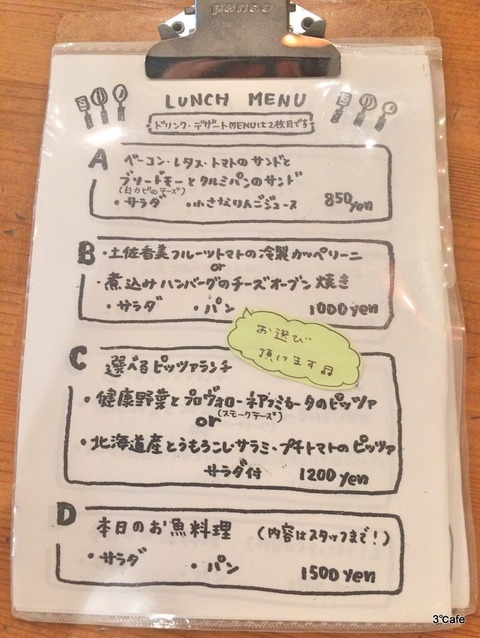 LUNCH MENU
ドリンク・デザートMENUは2枚目です
A
ベーコン・レタス・トマトのサンドと
ブリードモーとクルミパンのサンド
(白カビのチーズ)
・サラダ ・小さなりんごジュース 850yen
B
・土佐香美フルーツトマトの冷製カッペリーニ
or
・煮込みハンバーグのチーズオーブン焼き
・サラダ ・パン 1000yen
お選び
頂けます♫
C
選べるピッツァランチ
・健康野菜とプロヴォローネアフミカータのピッツァ
(スモークチーズ)
or
・北海道産とうもろこし・サラミ・プチトマトのピッツァ
サラダ付 1200yen
D
本日のお魚料理 (内容はスタッフまで!)
・サラダ ・パン 1500yen
3℃afe